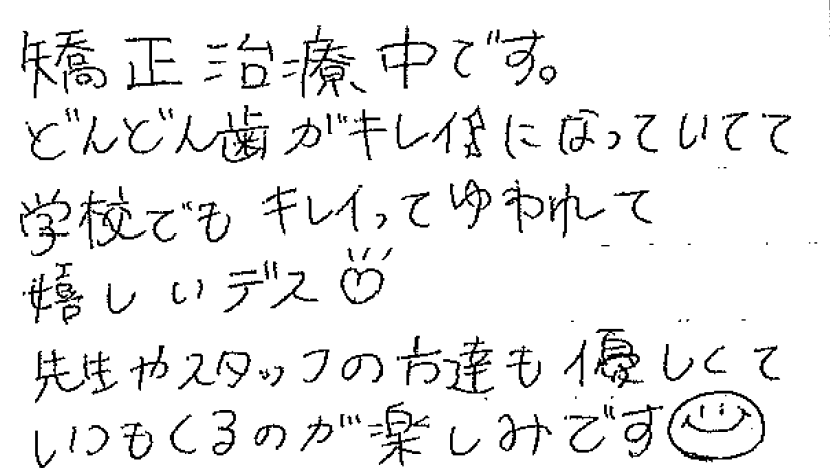 矯正治療中です。
どんどん歯がキレイになっていてて
学校でもキレイってゆわれて
嬉しいデス
先生やスタッフの方達も優しくて
いつもくるのが楽しみです